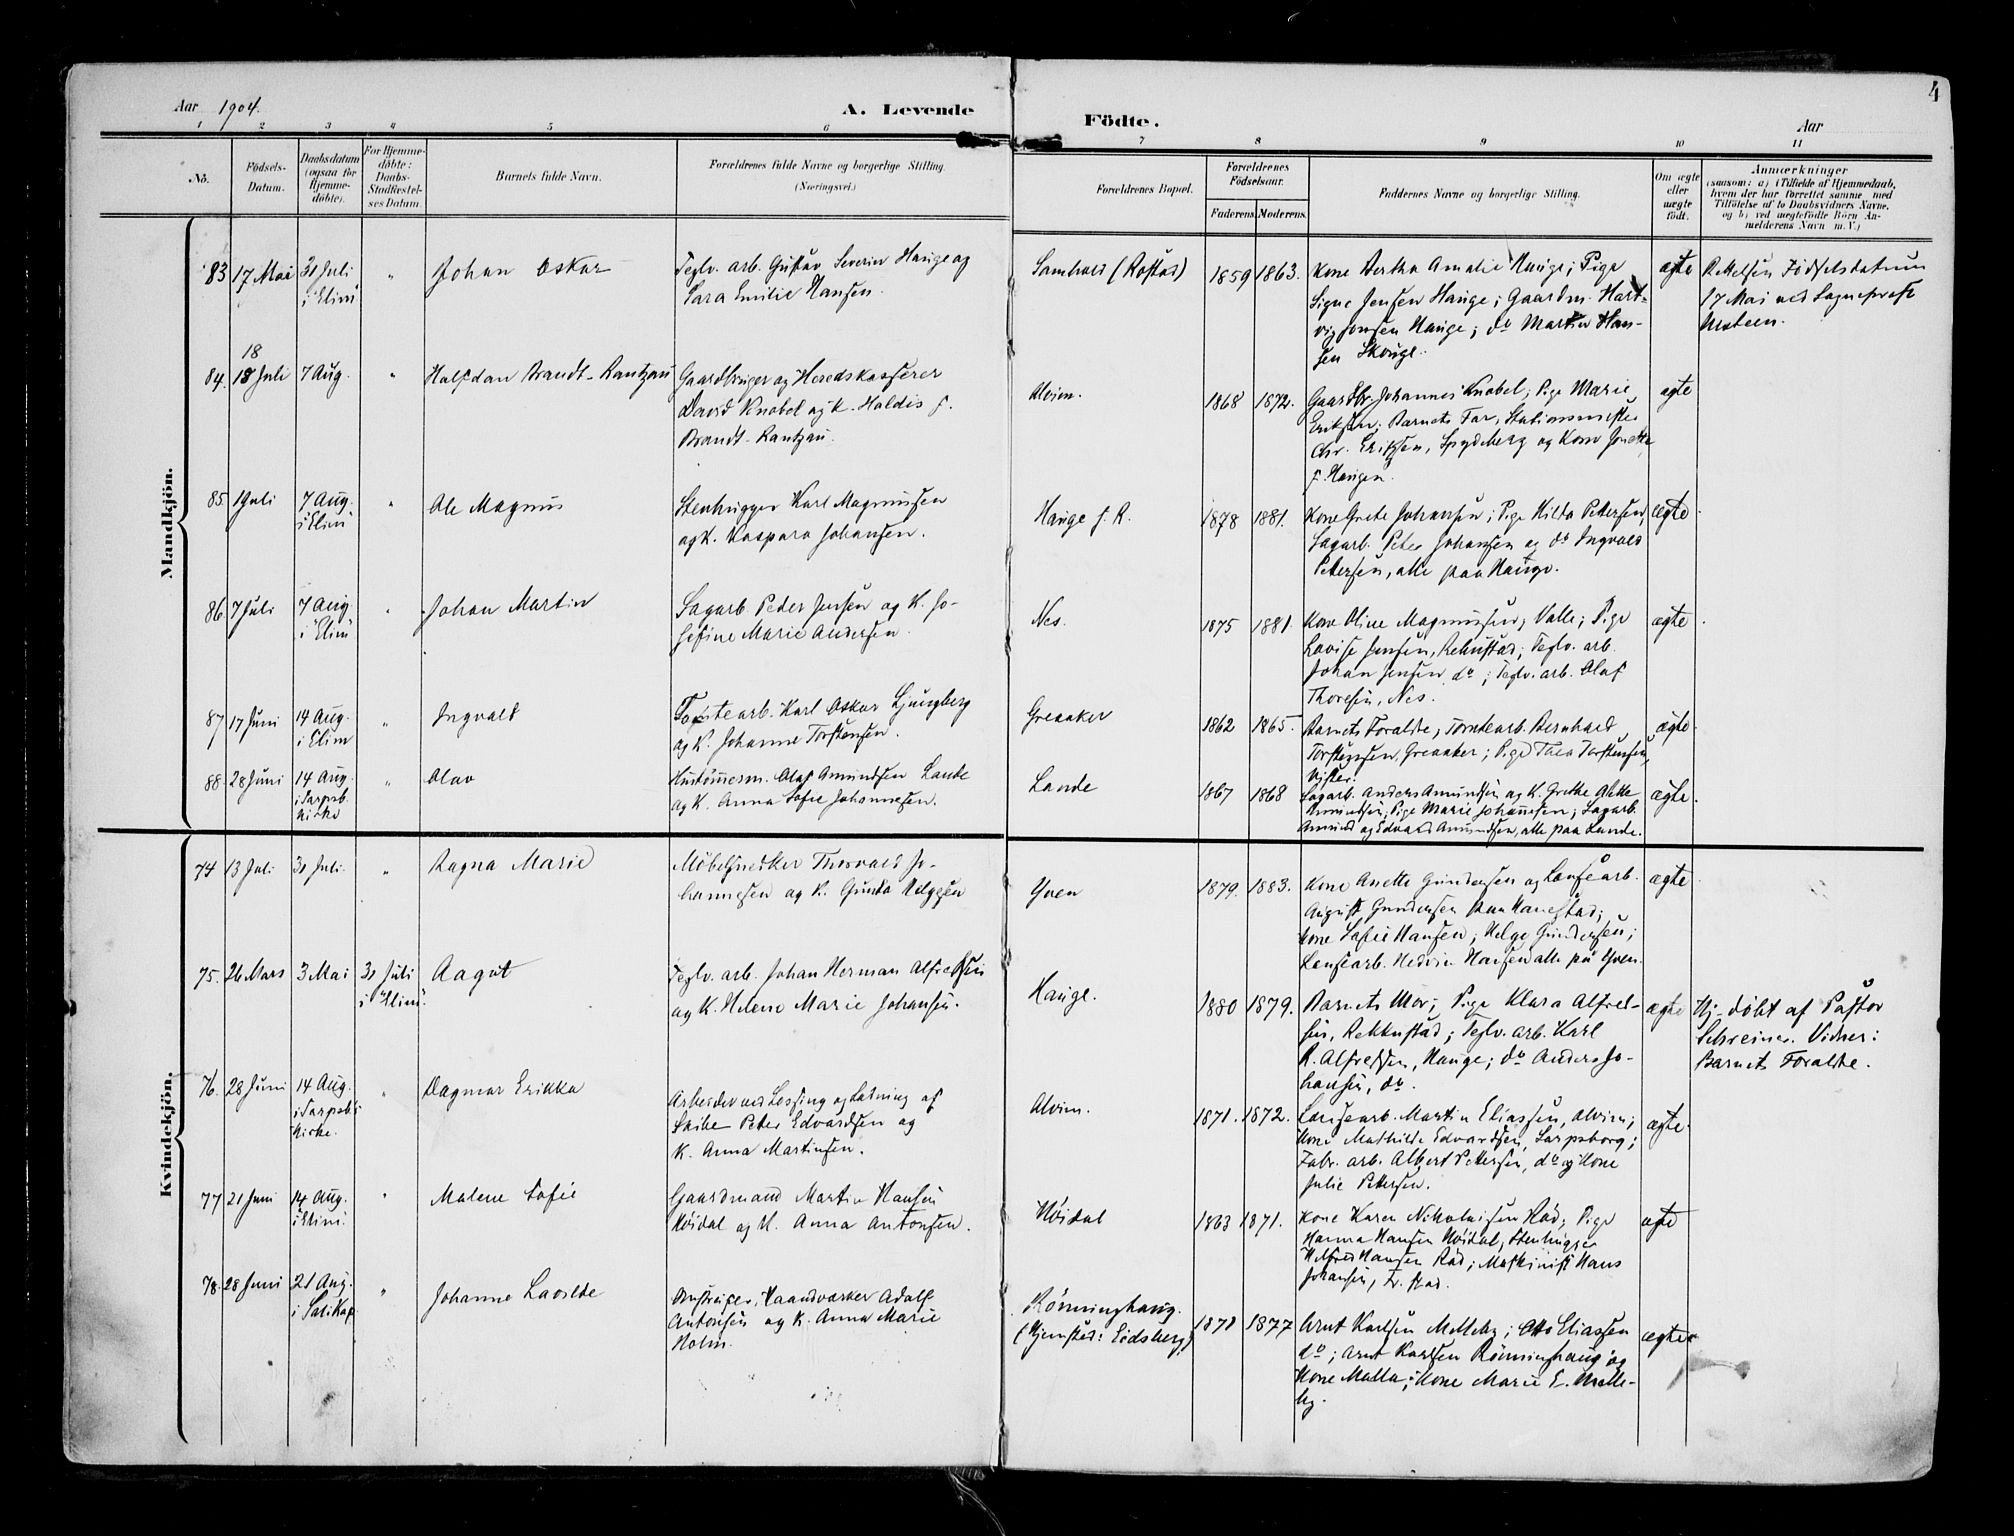 4
Aar 1904.
A. Levende
Födte.
Aar
1 2 3 4 5 6 7 8 9 10 11
Nô.
Födsels-
Datum.
Daabsdatum
(ogsaa for
Hjemme-
döbte).
For Hjemme-
döbte:
Daabs-
Stadfæstel-
ses Datum.
Barnets fulde Navn.
Forældrenes fulde Navne og borgerlige Stilling.
(Næringsvei.)
Forældrenes Bopæl.
Forældrenes
Födselsaar.
Faderens. Moderens.
Faddernes Navne og borgerlige Stilling.
Om ægte
eller
uægte
født.
Anmærkninger
(saasom: a) i Tilfælde af Hjemmedaab,
hvem der har forrettet samme med
Tilföielse af to Daabsvidners Navne,
og b) ved uægtefødte Börn An-
melderens Navn m. V.)
Mandkjön.
83 17 Mai 31 Juli
i "Elim"
" Johan Oskar
Teglv. arb. Gustav Severin Hauge og
Sara Emilie Hansen.
(Rostad) 1859 1863.
Kone Bertha Amalie Hauge; Pige
Signe Jensen Hauge; Gaardm. Hart-
vig Jensen Hauge; do Martin Han-
sen Skouge.
ægte
Rettelsen Födselsdatum
17 Mai ved Sogneprest
18
84. 18 Juli 7 Aug. "
Halfdan Brandt-Rantzau
Gaardbruger og Heredskasserer
David Knobel og K. Haldis f.
Brandt-Rantzau.
Alvim.
1868 1872.
Gaardbr. Johannes Knobel; Pige Marie
Eriksen; Barnets Far, Stationsmester
Chr. Eriksen, Spydeberg og Kone Jonette
f. Haugen.
ægte
85. 1 Juli 7 Aug.
i "Elim"
" Ole Magnus
Stenhugger Karl Magnussen
og K. Kaspara Johansen.
Hauge f. R.
1878 1881.
Kone Grete Johansen; Pige Hilda Pettersen,
Sagarb. Peter Johansen og do Ingvald
Pettersen, alle paa Hauge.
ægte
86. 7 Juli 7 Aug.
i "Elim"
" Johan Martin
Sagarb. Peder Jensen og K. Jo-
sefine Marie Andersen.
Nes.
1875 1881.
Kone Oline Magnussen, Valle; Pige
Lovise Jensen, Rekustad; Teglv. arb.
Johan Jensen do; Teglv. arb. Olaf
Thoresen, Nes.
ægte
87 17 Juni 14 Aug.
i Elim
" Ingvald
Tomtearb. Karl Oskar Ljungberg
og K. Johanne Torstensen.
Greaaker
1862 1865.
Barnets Forældre, Tomtearb. Bernhard
Torstensen, Greaaker; Pige Thea Torstensen,
ægte
88. 28 Juni 14 Aug.
i Sarpsb.
kirke
" Olav
Hustömrerm. Olaf Amundsen Lande
og K. Anna Sofie Johannesen.
Lande
1867 1868
Sagarb. Anders Amundsen og K. Grethe Alette
Amundsen, Pige Marie Johannesen; Sagarb.
Amund og Edvard Amundsen, alle paa Lande.
ægte.
Kvindekjön.
74 13 Juli 31 Juli. "
Ragna Marie
Möbelsnedker Thorvald Jo-
hannesen og K. Gunda Helgesen
Yven
1879. 1883.
Kone Anette Gundersen og Lensearb.
August Gundersen paa Hanestad;
Kone Sofie Hansen; Helge Gundersen;
Lensearb. Hedvin Hansen alle på Yven.
ægte
75. 26 Mars 3 Mai 31 Juli
i "Elim".
Aagot
Teglv. arb. Johan Herman Alfredsen
og K. Helene Marie Johansen.
Hauge.
1880 1879.
Barnets Mor; Pige Klara Alfred-
sen, Rekkustad; Teglv. arb. Karl
R. Alfredsen, Hauge; do Anders Jo-
hansen, do.
ægte
Hj.-döbt af Pastor
Schreiner. Vidner:
Barnets Forældre.
76. 28 Juni 14 Aug.
i Sarpsb.
kirke.
" Dagmar Erikka
Arbeider ved Lossing og Ladning af
Skibe Peter Edvardsen og
K. Anna Martinsen.
Alvim.
1871. 1872.
Lensearb. Martin Eliassen, Alvim;
Kone Mathilde Edvardsen, Sarpsborg;
Fabr. arb. Albert Pettersen, do og Kone
Julie Pettersen.
ægte.
77 21 Juni 14 Aug.
i "Elim".
" Malene Sofie
Gaardmand Martin Hansen
Höidal og K. Anna Antonsen.
Höidal
1863 1871.
Kone Karen Nikolaisen Råd; Pige
Hanna Hansen Höidal, Stenhugger
Hilfred Hansen Råd; Maskinist Hans
Johansen, Fr. stad.
ægte
78. 28 Juni 21 Aug.
" Johanne Lovilde
Anstryger, Haandværker Adolf
Antonsen og K. Anna Marie
Holm.
Rönninghaug.
(Hjemsted: Eidsberg.)
1878 1877
Arnt Karlsen Melleby; Otto Eliassen
do; Arnt Karlsen Rönninghaug og
Kone Malla; Kone Marie E. Melle-
by.
ægte